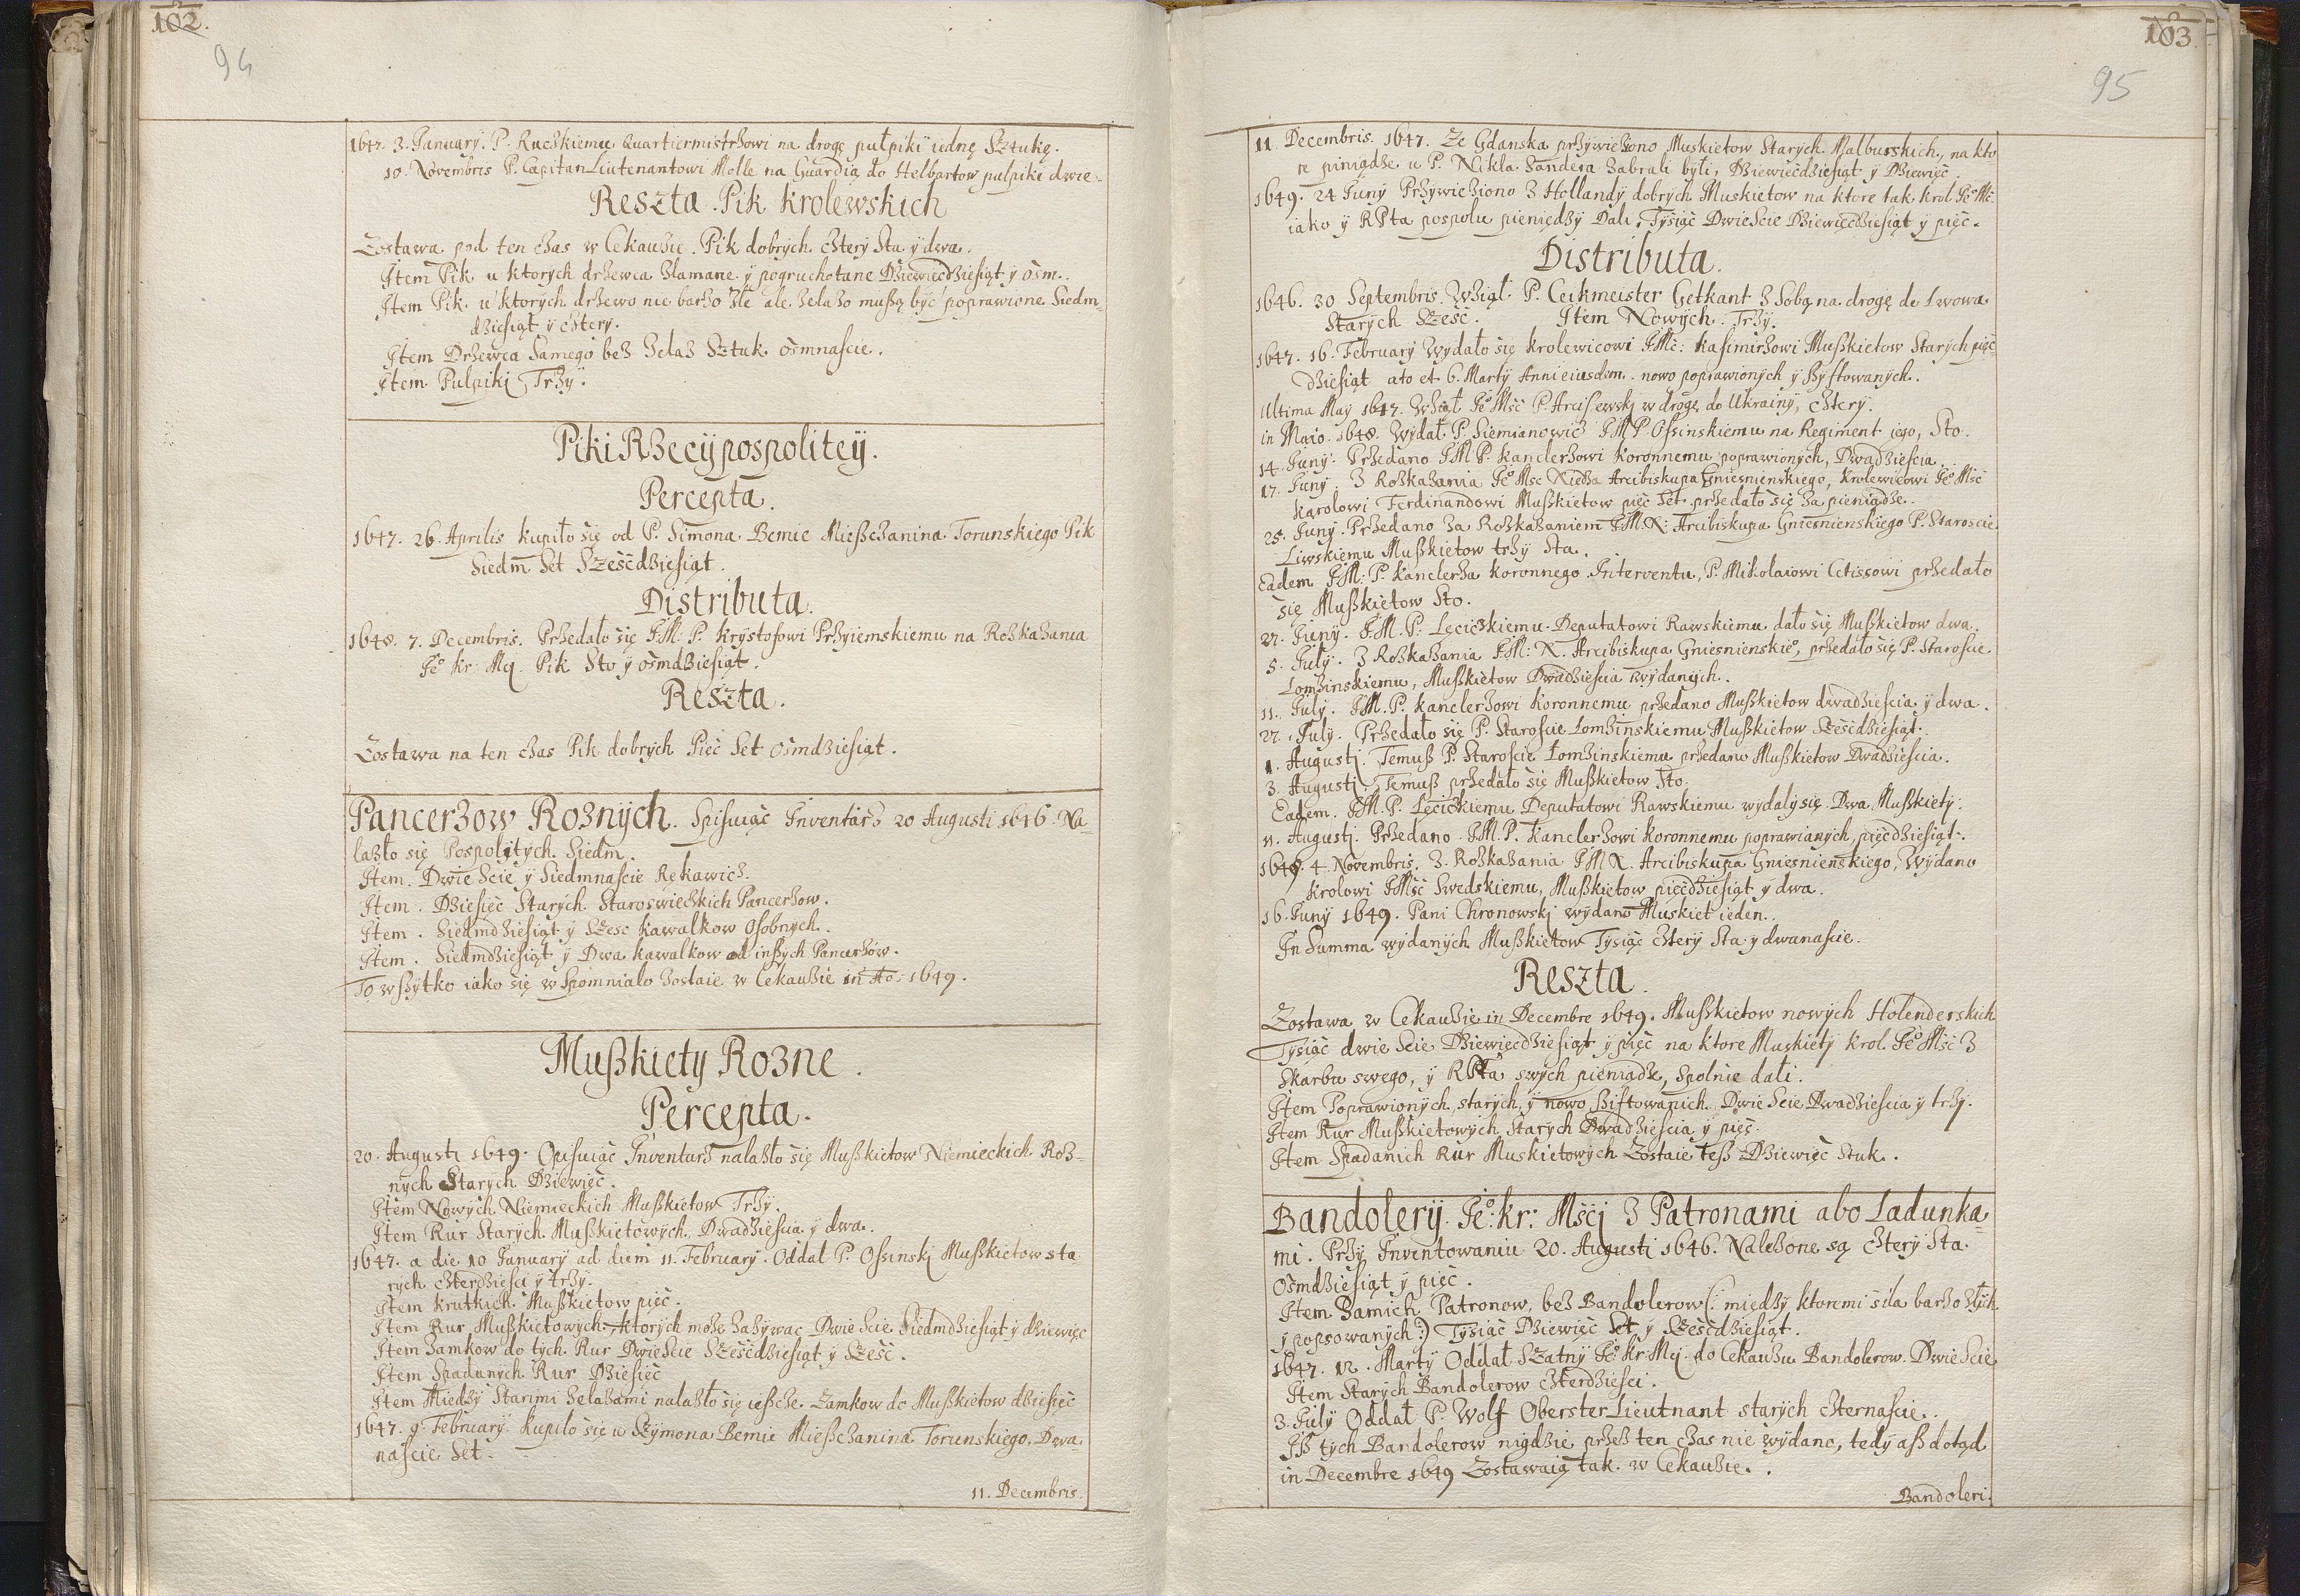 102.
94
1647. 3. January. P. Ruckiemu Quartiermistrzowi na drogę pułpiki iednę Sztukę.
10. Novembris P. Capitan Liutenantowi Molle na Guardią do Helbartow pulpiki dwie.
Reszta. Pik krolewskich
Zostawa pod ten czas w Cekauzie. Pik dobrych cztery sta y dwa.
Item Pik u ktorych drzewca złamane y pogruchotane Dziewięcdziesiąt y osm.
Item Pik u ktorych drzewo nie barzo złe ale żelazo muszą być poprawione Siedm-
dziesiąt y cztery.
Item Drzewca Samego bez Zelaz Sztuk osmnascie.
Item Pulpiki Trzy.
Piki Rzecÿpospolitey.
Percepta.
1647. 26. Aprilis kupiło się od P. Simona Bemic Mieszczanina Torunskiego Pik
Siedm Set Szescdziesiąt.
Distributa.
1648. 7. Decembris. Przedało się J.M. P. Krystofowi Przyiemskiemu na Rozkazania
Je° kr. Mci. Pik Sto y osmdziesiąt.
Reszta.
Zostawa na ten czas Pik dobrych Pięć Set osmdziesiąt.
Pancerzow Roznych. Spisuiąc Inventarz 20 Augusti 1646. Na-
lazło się Pospolitych. Siedm.
Item. Dwie scie y Siedmnascie Rękawicz.
Item. Dziesięć Starych Staroswieckich Pancerzow.
Item. Siedmdziesiąt y Szesc kawalkow Osobnych.
Item. Siedmdziesiąt y Dwa kawalkow od inszych Pancerzow.
To wszytko iako się w Spomnialo zostaie w Cekauzie in A°: 1649.
Muszkiety Rozne.
Percepta.
20. Augusti 1649. Opisuiąc Inventarz nalazło się Muszkietow Niemieckich Roz-
nych Starych Dziewięć.
Item Nowych Niemieckich Muszkietow Trzy.
Item Rur Starych Muszkietowych. Dwadziescia y dwa.
1647. a die 10 January ad diem 11. February. Oddal P. Ossinski Muszkietow sta
rych czterdziesci y trzy.
Item krutkich Muszkietow pięć.
Item Rur Muszkietowych, ktorych moze zazywac Dwie scie Siedmdziesiąt y dziewięc
Item Zamkow do tych Rur Dwiescie Szescdziesiąt y Szesc.
Item Spadanych Rur Dziesięć
Item Miedzy Starimi Zelazami nalazło się ieszcze. Zamkow do Muszkietow dziesięc
1647. 9. February. kupiło się u Szymona Bemic Mieszczanina Torunskiego, Dwa
nascie Set.
11. Decembris.
103.
95
11. Decembris. 1647. Ze Gdanska przywieziono Muskietow Starych Malburskich, na kto
re piniądze u P. Nikla Zandera zabrali byli, Dziewięćdziesiąt y Dziewięć.
1649. 24 Juny Przywieziono z Hollandy dobrych Muskietow na ktore tak krol Je° Mć.
iako y RPta pospolu pieniędzy Dali, Tysiąc Dwiescie Dziewięcdziesiąt y pięc.
Distributa.
1646. 30 Septembris. Wziął P. Ceikmeister Getkant z Sobą na drogę de Lwowa
Starych Szesc. Item Nowych. Trzy.
1647. 16. February Wydało się krolewicowi J.Mć: Kasimirzowi Muszkietow Starych pięc-
dziesiąt ato et 6. Marty Anni eiusdem. nowo poprawionych y szyftowanych.
Ultima May 1647. Wziął Je° Msć P. Arciszewski w drogę do Ukrainy, cztery.
in Maio. 1648. Wydał P. Siemianowicz J.M.P. Ossinskiemu na Regiment iego, Sto.
14. Juny. Przedano J.M.P. kanclerzowi Koronnemu poprawionych, Dwadziescia.
17. Juny. Z Rozkazania Je° Msc Xiedza Arcibiskupa Gniesnienskiego, Krolewicowi Je° Msc
Karolowi Ferdinandowi Muszkietow pięc Set przedało się za pieniądze.
25. Juny. Przedano za Rozkazaniem J.M.X: Arcibiskupa Gniesnienskiego P. Staroscie
Liwskiemu Muszkietow trzy sta.
Eadem. J.M: P. Kanclerza Koronnego Interventu, P. Mikolaiowi Cetissowi przedało
się Muszkietow Sto.
27. Juny. J.M.P. Lęcickiemu Deputatowi Rawskiemu dało się Muszkietow dwa.
5. July. Z Rozkazania J.M: X. Arcibiskupa Gniesnienskie°, przedało się P. Staroscie
Łomzinskiemu, Muszkietow Dwadziescia wydanych.
11. July. J.M.P. kanclerzowi Koronnemu przedano Muszkietow dwadziescia y dwa.
27. July. Przedało się P. Staroscie Łomzinskiemu Muszkietow Szescdziesiąt.
1. Augusti. Temusz P. Staroscie Łomzinskiemu przedano Muszkietow Dwadziescia.
3. Augusti. Temusz przedało się Muszkietow Sto.
Eadem. J.M.P. Lęcickiemu Deputatowi Rawskiemu wydaly się Dwa Muszkiety.
11. Augusti. Przedano J.M.P. kanclerzowi koronnemu poprawianych, pięcdziesiąt.
1648. 4. Novembris. Z. Rozkazania J.M.X. Arcibiskupa Gniesnienskiego, Wydano
Krolowi J.Msc Swedskiemu, Muszkietow pięcdziesiąt y dwa.
16. Juny 1649. Pani Chronowski wydano Muskiet ieden.
In Summa wydanych Muszkietow Tysiąc cztery Sta y dwanascie.
Reszta.
Zostawa w Cekauzie in Decembre 1649. Muszkietow nowych Holenderskich
Tysiąc dwie scie Dziewięcdziesiąt y pięc na ktore Muskiety krol. Je° Msc z
Skarbu swego, y RPta swych pieniądze, Spolnie dali.
Item Poprawionych, starych, y nowo sziftowanich. Dwie scie Dwadziescia y trzy.
Item Rur Muszkietowych Starych Dwadziescia y pięc.
Item Spadanich Rur Muskietowych Zostaie tesz Dziewięc Stuk.
Bandolery. Je°: kr: Mści z Patronami abo Ladunka-
mi. Przy Inventowaniu 20. Augusti 1646. Nalezone są cztery sta.
Osmdziesiąt y pięc.
Item Zamich Patronow, bez Bandolerow (: między ktoremi siła barzo złych
y popsowanych :) Tysiąc Dziewięc Set y Szescdziesiąt.
1647. 12. Marty Oddał Szatny Je° Kr: Mci. do Cekauzu Bandolerow. Dwie Scie
Item Starych Bandolerow czterdziesci.
3. July Oddał P. Wolf Oberster Lieutnant starych czternascie.
Isz tych Bandolerow nigdzie przez ten czas nie wydano, tedy asz dotąd
in Decembre 1649 Zostawaią tak w Cekauzie.
Bandoleri.